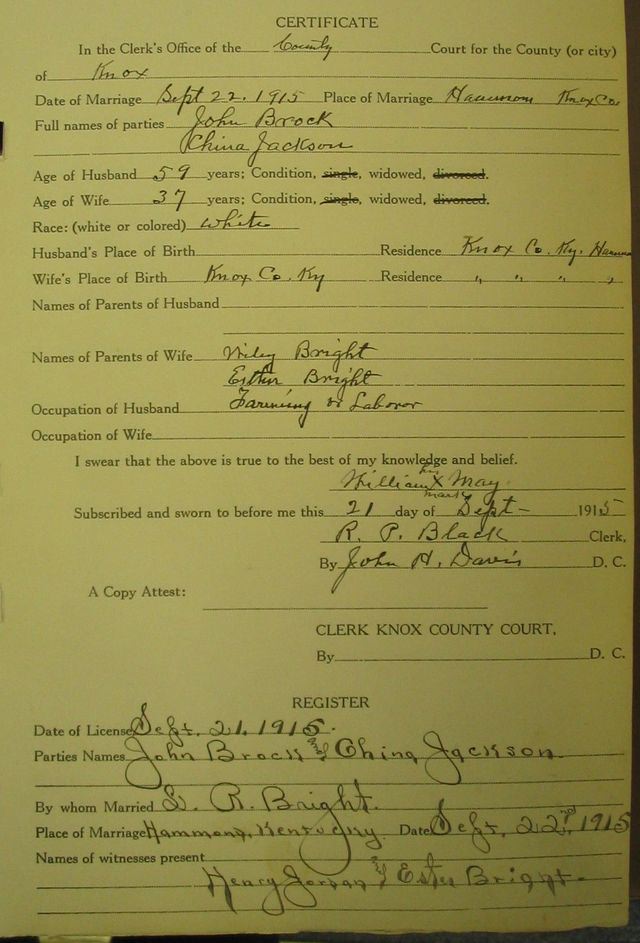 CERTIFICATE
In the Clerk's Office of the County Court for the County (or city)
of Knox
Date of Marriage Sept 22, 1915 Place of Marriage Hammons Knox Co.
Full names of parties John Brock
China Jackson
Age of Husband 59 years; Condition, single, widowed, divorced.
Age of Wife 37 years; Condition, single, widowed, divorced.
Race: (white or colored) white
Husband's Place of Birth Residence Knox Co. Ky.
Wife's Place of Birth Knox Co. Ky Residence " " " "
Names of Parents of Husband
Names of Parents of Wife Wiley Bright
Esther Bright
Occupation of Husband Farming or Laborer
Occupation of Wife
I swear that the above is true to the best of my knowledge and belief.
his
William X May
mark
Subscribed and sworn to before me this 21 day of Sept- 1915
R. P. Black Clerk,
By John H. Davis D. C.
A Copy Attest:
CLERK KNOX COUNTY COURT.
By D. C.
REGISTER
Date of License Sept. 21, 1915.
Parties Names John Brock & China Jackson
By whom Married R. Bright.
Place of Marriage Hammond, Kentucky. Date Sept. 22nd, 1915
Names of witnesses present
Henry Jordan & Ester Bright-